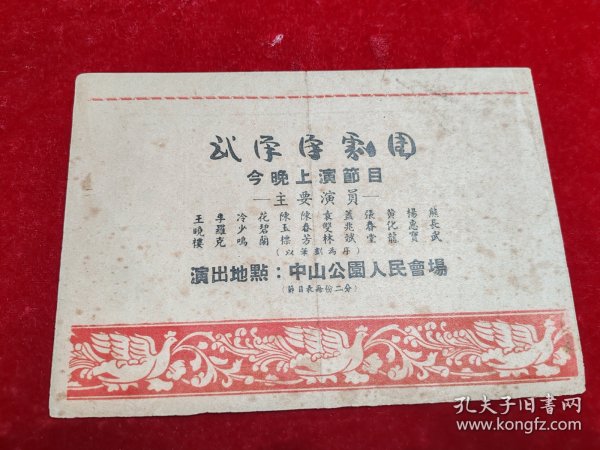 武漢漢劇團
今晚上演節目
—主要演員—
王曉樓
李羅克
冷少鳴
花碧蘭
陳玉標
陳春芳
袁雙林
蓋兆斌
張春堂
黃化龍
楊惠寶
熊長武
（以筆劃為序）
演出地點：中山公園人民會場
（節目表每份二分）
孔夫子旧书网
www.kongfz.com